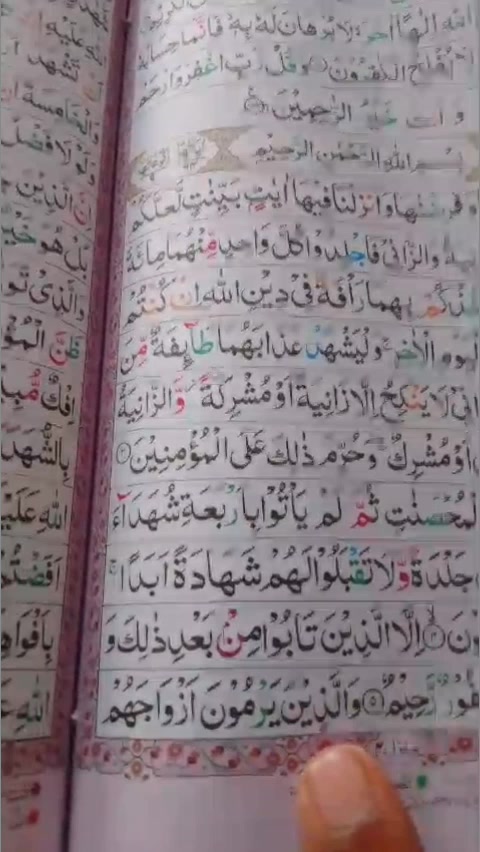 اللهِ اِلٰهًا اٰخَرَ لَا بُرْهَانَ لَهٗ بِهٖ فَاِنَّمَا حِسَابُهٗ
الْكٰفِرُوْنَ وَقُلْ رَّبِّ اغْفِرْ وَارْحَمْ
وَاَنْتَ خَيْرُ الرّٰحِمِيْنَ
بِسْمِ اللهِ الرَّحْمٰنِ الرَّحِيْمِ
وَاَنْزَلْنَا فِيْهَا اٰيٰتٍ بَيِّنٰتٍ لَّعَلَّكُمْ
وَالزَّانِيْ فَاجْلِدُوْا كُلَّ وَاحِدٍ مِّنْهُمَا مِائَةَ
بِهِمَا رَاْفَةٌ فِيْ دِيْنِ اللهِ اِنْ كُنْتُمْ
الْاٰخِرِ وَلْيَشْهَدْ عَذَابَهُمَا طَآئِفَةٌ مِّنَ
لَا يَنْكِحُ اِلَّا زَانِيَةً اَوْ مُشْرِكَةً وَّالزَّانِيَةُ
اَوْ مُشْرِكٌ وَحُرِّمَ ذٰلِكَ عَلَى الْمُؤْمِنِيْنَ ۝۳
لْمُحْصَنٰتِ ثُمَّ لَمْ يَاْتُوْا بِاَرْبَعَةِ شُهَدَآءَ
جَلْدَةً وَّلَا تَقْبَلُوْا لَهُمْ شَهَادَةً اَبَدًا
وْنَ ۝۴ اِلَّا الَّذِيْنَ تَابُوْا مِنْۢ بَعْدِ ذٰلِكَ وَ
فُوْرٌ رَّحِيْمٌ ۝۵ وَالَّذِيْنَ يَرْمُوْنَ اَزْوَاجَهُمْ
عَلَيْهِ
تَشْهَدَ
وَالْخَامِسَةَ
وَلَوْلَا فَضْلُ
اِنَّ الَّذِيْنَ
بَلْ هُوَ خَيْرٌ
وَالَّذِيْ تَوَ
ظَنَّ الْمُؤْ
اِفْكٌ مُّبِيْ
بِالشُّهَدَ
اللهِ عَلَيْ
اَفَضْتُمْ
بِاَفْوَاهِ
اللهِ عَ